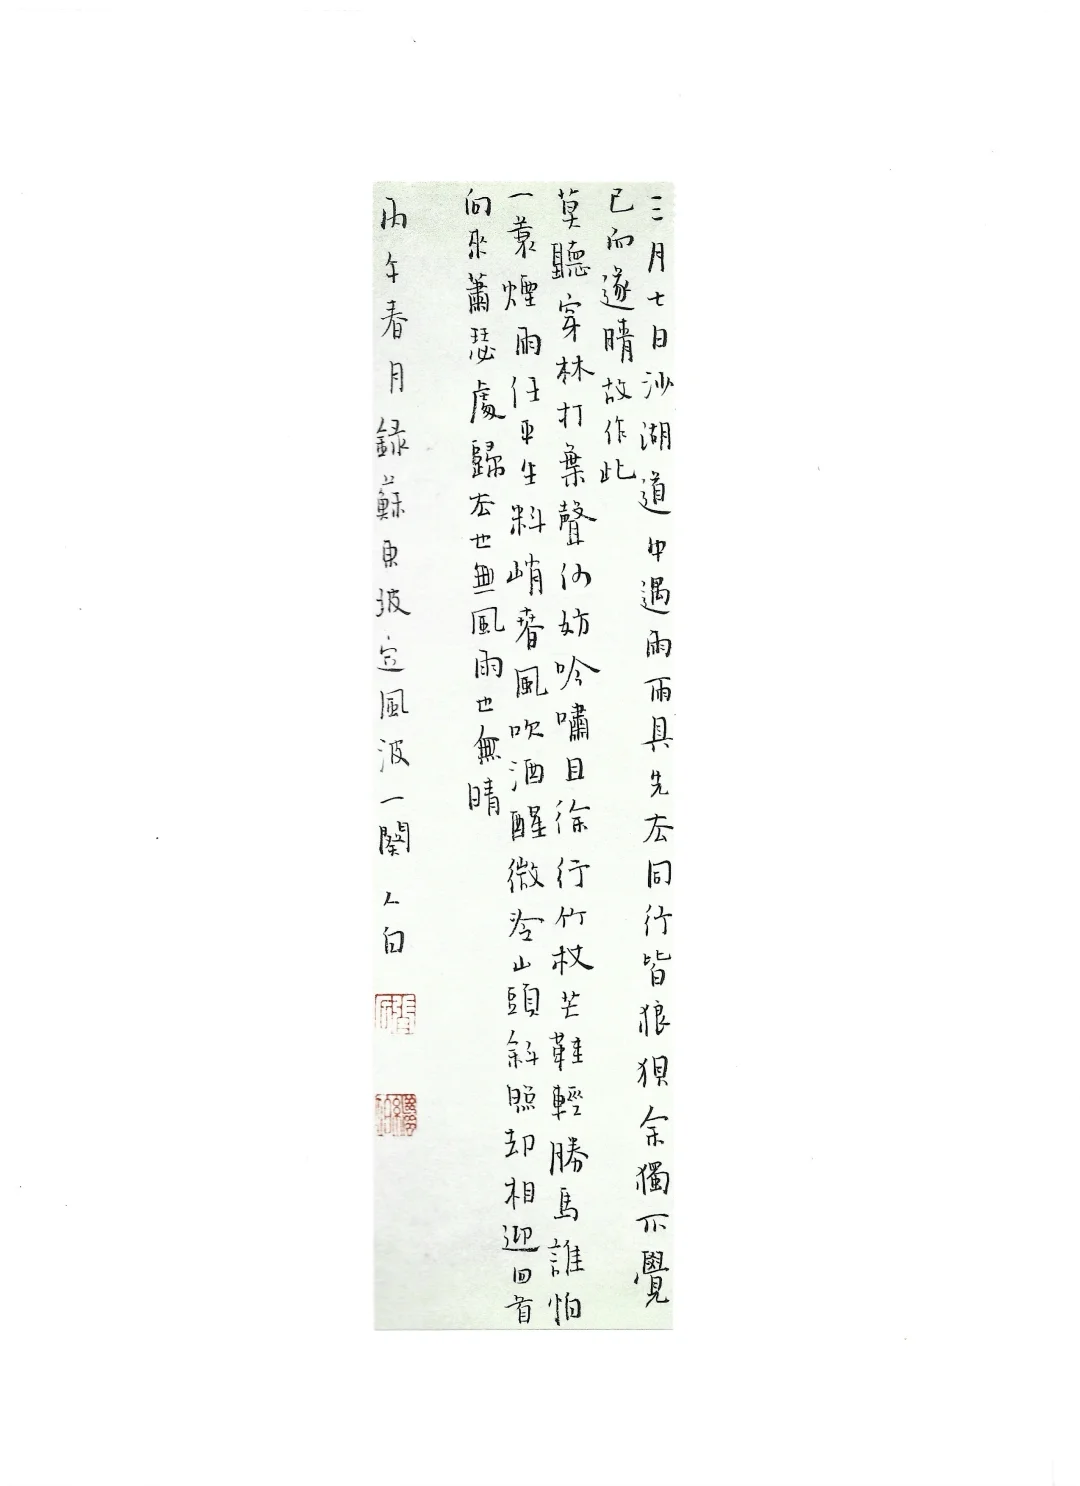 三月七日沙湖道中遇雨雨具先去同行皆狼狽余獨不覺
已而遂晴故作此
莫聽穿林打葉聲何妨吟嘯且徐行竹杖芒鞋輕勝馬誰怕
一蓑煙雨任平生料峭春風吹酒醒微冷山頭斜照却相迎回首
向來蕭瑟處歸去也無風雨也無晴
丙午春月録蘇東坡定風波一闋 人白